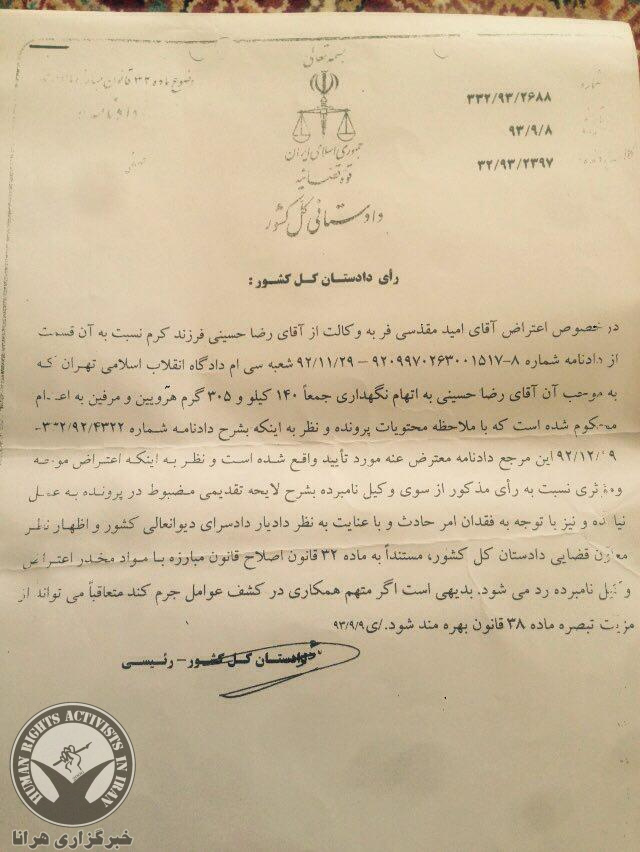 بسمه تعالی
موضوع ماده ۳۲ قانون
جمهوری اسلامی ایران
قوه قضائیه
دادستانی کل کشور
۳۳۲/۹۳/۲۶۸۸
۹۳/۹/۸
۳۲/۹۳/۲۳۹۷
رأی دادستان کل کشور :
در خصوص اعتراض آقای امید مقدسی فر به وکالت از آقای رضا حسینی فرزند کرم نسبت به آن قسمت
از دادنامه شماره ۸-۹۲۰۹۹۷۰۲۶۳۰۰۱۵۱۷ – ۹۲/۱۱/۲۹ شعبه سی ام دادگاه انقلاب اسلامی تهران که
به موجب آن آقای رضا حسینی به اتهام نگهداری جمعاً ۱۴۰ کیلو و ۳۰۵ گرم هروئین و مرفین به اعدام
محکوم شده است که با ملاحظه محتویات پرونده و نظر به اینکه بشرح دادنامه شماره ۳۳۲/۹۲/۴۳۲۲-
۹۲/۱۲/۱۹ این مرجع دادنامه معترض عنه مورد تأیید واقع شده است و نظر به اینکه اعتراض موجه
و مؤثری نسبت به رأی مذکور از سوی وکیل نامبرده بشرح لایحه تقدیمی مضبوط در پرونده به عمل
نیامده و نیز با توجه به فقدان امر حادث و با عنایت به نظر دادیار دادسرای دیوانعالی کشور و اظهار نظر
معاون قضایی دادستان کل کشور، مستنداً به ماده ۳۲ قانون اصلاح قانون مبارزه با مواد مخدر اعتراض
وکیل نامبرده رد می شود. بدیهی است اگر متهم همکاری در کشف عوامل جرم کند متعاقباً می تواند از
مزیت تبصره ماده ۳۸ قانون بهره مند شود./ی ۹۳/۹/۹
دادستان کل کشور – رئیسی
HUMAN RIGHTS ACTIVISTS IN IRAN
خبرگزاری هرانا